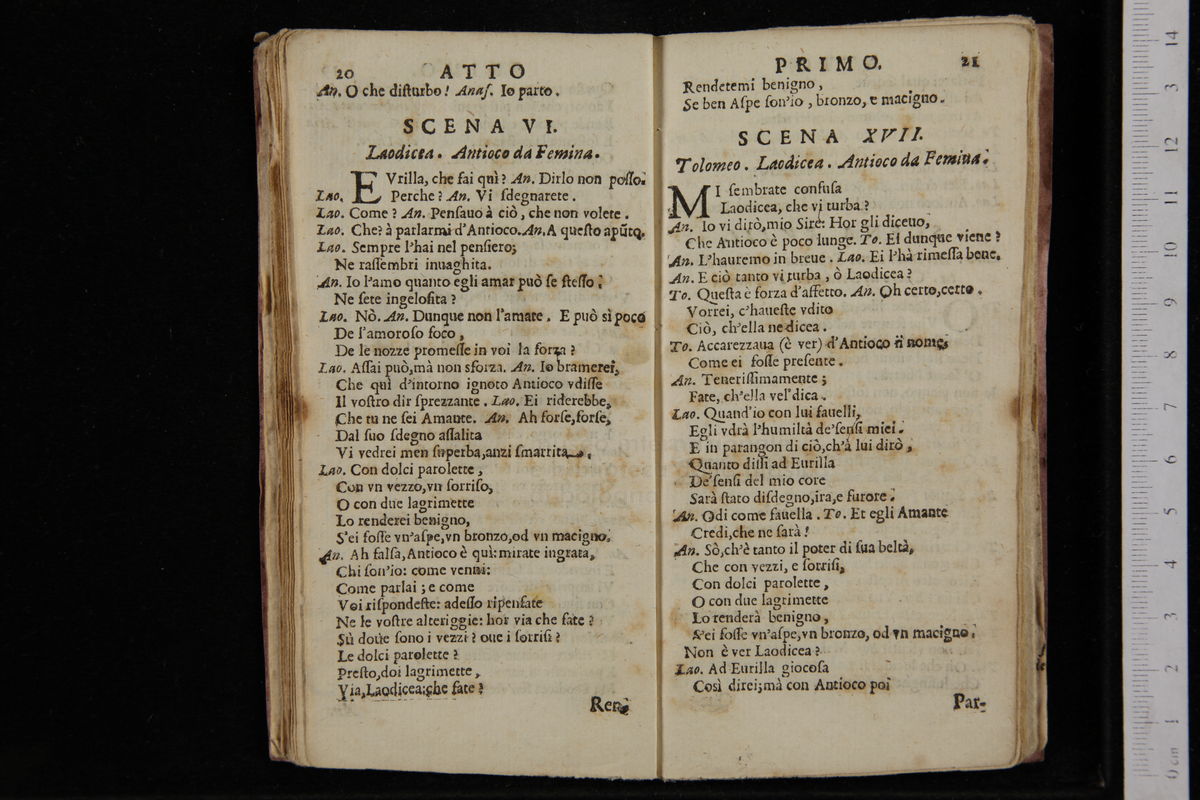 20 ATTO
An. O che diſturbo! Anaſ. Io parto.
SCENA VI.
Laodicea. Antioco da Femina.
EVrilla, che fai quì? An. Dirlo non poſſo.
Lao. Perche? An. Vi ſdegnarete.
Lao. Come? An. Penſauo à ciò, che non volete.
Lao. Che? à parlarmi d'Antioco. An. A queſto apūto.
Lao. Sempre l'hai nel penſiero;
Ne raſſembri inuaghita.
An. Io l'amo quanto egli amar può ſe ſteſſo.
Ne ſete ingeloſita?
Lao. Nò. An. Dunque non l'amate. E può sì poco
De l'amoroſo foco,
De le nozze promeſſe in voi la forza?
Lao. Aſſai può, mà non sforza. An. Io bramerei,
Che quì d'intorno ignoto Antioco vdiſſe
Il voſtro dir ſprezzante. Lao. Ei riderebbe,
Che tu ne ſei Amante. An. Ah forſe, forſe,
Dal ſuo ſdegno aſſalita
Vi vedrei men ſuperba, anzi ſmarrita.
Lao. Con dolci parolette,
Con vn vezzo, vn ſorriſo,
O con due lagrimette
Lo renderei benigno,
S'ei foſſe vn'aſpe, vn bronzo, od vn macigno.
An. Ah falſa, Antioco è quì: mirate ingrata,
Chi ſon'io: come venni:
Come parlai; e come
Voi riſpondeſte: adeſſo ripenſate
Ne le voſtre alteriggie: hor via che fate?
Sù doue ſono i vezzi? oue i ſorriſi?
Le dolci parolette?
Preſto, doi lagrimette,
Via, Laodicea: che fate?
Ren-
PRIMO. 21
Rendetemi benigno,
Se ben Aſpe ſon'io, bronzo, e macigno.
SCENA XVII.
Tolomeo. Laodicea. Antioco da Femina.
MI ſembrate confuſa
Laodicea, che vi turba?
An. Io vi dirò, mio Sire: Hor gli diceuo,
Che Antioco è poco lunge. To. Ei dunque viene?
An. L'hauremo in breue. Lao. Ei l'hà rimeſſa bene.
An. E ciò tanto vi turba, ò Laodicea?
To. Queſta è forza d'affetto. An. Oh certo, certo.
Vorrei, c'haueſte vdito
Ciò, ch'ella ne dicea.
To. Accarezzaua (è ver) d'Antioco il nome,
Come ei foſſe preſente.
An. Teneriſſimamente;
Fate, ch'ella vel' dica.
Lao. Quand'io con lui fauelli,
Egli vdrà l'humiltà de'ſenſi miei.
E in parangon di ciò, ch'à lui dirò,
Quanto diſſi ad Eurilla
De'ſenſi del mio core
Sarà ſtato diſdegno, ira, e furore.
An. Odi come fauella. To. Et egli Amante
Credi, che ne ſarà!
An. Sò, ch'è tanto il poter di ſua beltà,
Che con vezzi, e ſorriſi,
Con dolci parolette,
O con due lagrimette
Lo renderà benigno,
S'ei foſſe vn'aſpe, vn bronzo, od vn macigno.
Non è ver Laodicea?
Lao. Ad Eurilla giocoſa
Così direi; mà con Antioco poi
Par-
0 cm 1 2 3 4 5 6 7 8 9 12 3 14